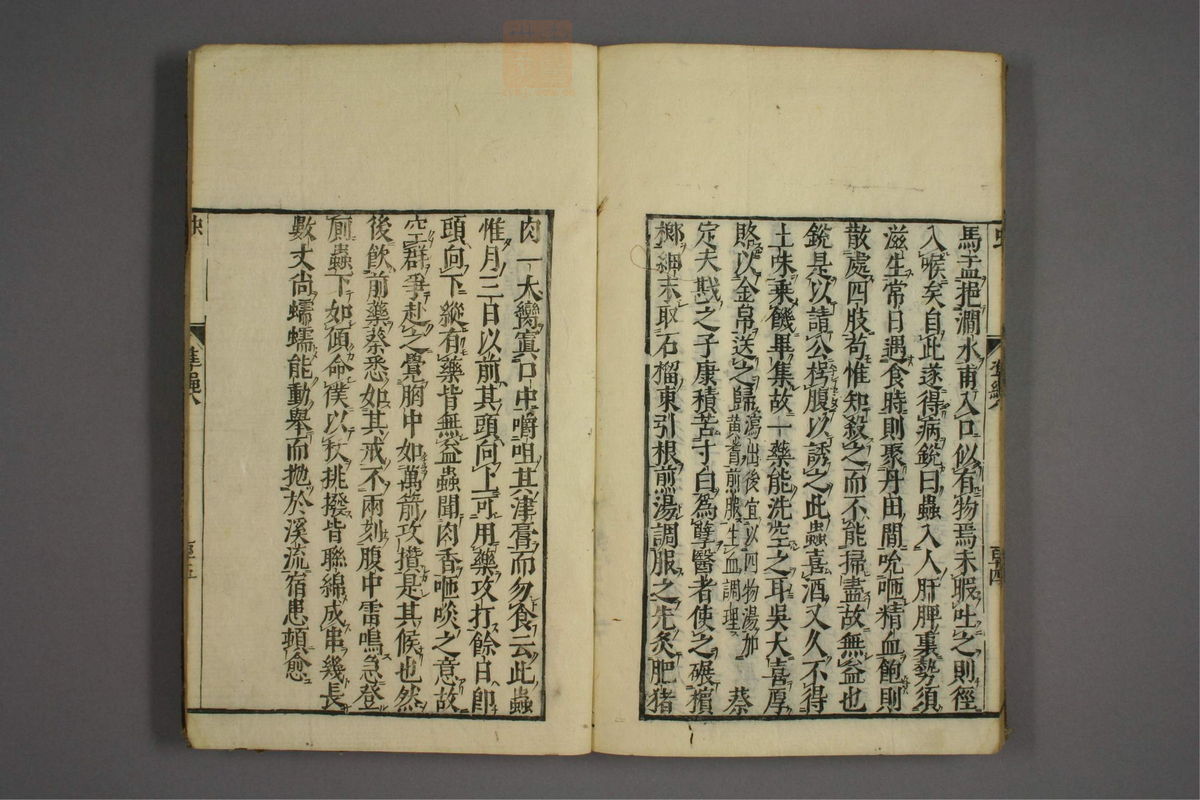 馬盂挹澗水甫入口似有物焉未暇吐之則徑
入喉矣自此遂得病銳曰蟲入人肝脾裏勢須
滋生常日遇食時則聚丹田間吮咂精血飽則
散處四肢苟惟知殺之而不能掃盡故無益也
銳是以請公枵腹以誘之此蟲喜酒又久不得
土味乘饑畢集故一藥能洗空之耳吳大喜厚
賂以金帛送之歸瀉出後宜以四物湯加黃耆煎服生血調理 蔡
定夫戡之子康積苦寸白為孽醫者使之碾檳
榔細末取石榴東引根煎湯調服之先炙肥猪
肉一大臠寘口中嚼咀其津膏而勿食云此蟲
惟月三日以前其頭向上可用藥攻打餘日即
頭向下縱有藥皆無益蟲聞肉香咂啖之意故
空群爭赴之覺胸中如萬箭攻攢是其候也然
後飲前藥蔡悉如其戒不兩刻腹中雷鳴急登
廁蟲下如傾命僕以杖挑撥皆聯綿成串幾長
數丈尚蠕蠕能動舉而抛於溪流宿患頓愈